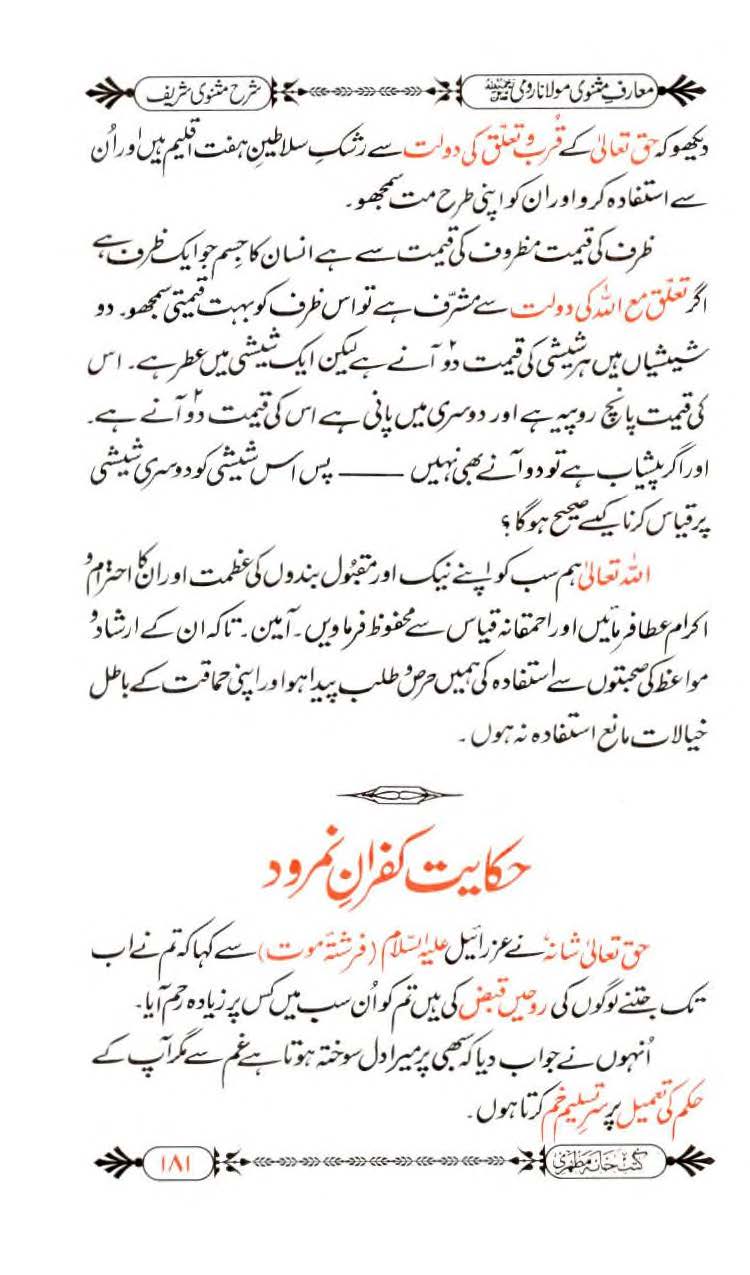 معارفِ مثنوی مولانا رومیؒ
شرح مثنوی شریف
دیکھو کہ حق تعالیٰ کے قُرب و تعلّق کی دولت سے رشکِ سلاطینِ ہفت اقلیم ہیں اور اُن
سے استفادہ کرو اور ان کو اپنی طرح مت سمجھو۔
ظرف کی قیمت مظروف کی قیمت سے ہے انسان کا جسم جو ایک ظرف ہے
اگر تعلّق مع اللہ کی دولت سے مشرّف ہے تو اس ظرف کو بہت قیمتی سمجھو۔ دو
شیشیاں ہیں ہر شیشی کی قیمت دو۲ آنے ہے لیکن ایک شیشی میں عطر ہے۔ اس
کی قیمت پانچ روپیہ ہے اور دوسری میں پانی ہے اس کی قیمت دو۲ آنے ہے۔
اور اگر پیشاب ہے تو دو آنے بھی نہیں —— پس اس شیشی کو دوسری شیشی
پر قیاس کرنا کیسے صحیح ہوگا؟
اللہ تعالیٰ ہم سب کو اپنے نیک اور مقبُول بندوں کی عظمت اور ان کا احترام و
اکرام عطا فرمائیں اور احمقانہ قیاس سے محفوظ فرماویں۔ آمین۔ تاکہ ان کے ارشاد و
مواعظ کی صحبتوں سے استفادہ کی ہمیں حرص و طلب پیدا ہو اور اپنی حماقت کے باطل
خیالات مانع استفادہ نہ ہوں۔
حکایت کفرانِ نمرود
حق تعالیٰ شانہٗ نے عزرائیل علیہ السّلام (فرشتۂ موت) سے کہا کہ تم نے اب
تک جتنے لوگوں کی روحیں قبض کی ہیں تم کو اُن سب میں کس پر زیادہ رحم آیا۔
اُنہوں نے جواب دیا کہ سبھی پر میرا دل سوختہ ہوتا ہے غم سے مگر آپ کے
حکم کی تعمیل پر سرِ تسلیم خم کرتا ہوں۔
کتب خانہ مظہری
۱۸۱